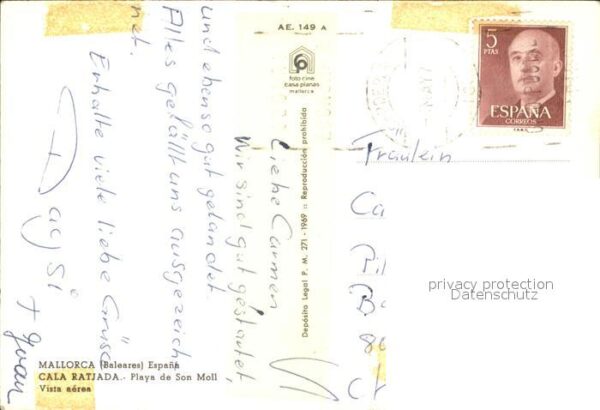 AE. 149 A
foto cine
casa planas
mallorca
Depósito Legal P. M. 271 - 1969 :: Reproducción prohibida
Liebe Carmen
Wir sind gut gestartet,
und ebenso gut gelandet.
Alles gefällt uns ausgezeich
net.
Erhalte viele liebe Grüsse
Daysi
+ Juan
5
PTAS
ESPAÑA
CORREOS
Fräulein
Ca
privacy protection
Datenschutz
MALLORCA (Baleares) España
CALA RATJADA.- Playa de Son Moll
Vista aérea